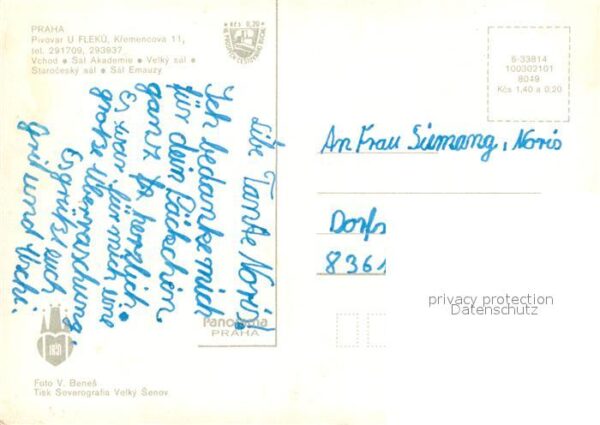 PRAHA
Pivovar U FLEKŮ, Křemencova 11,
tel. 291709, 293937
Vchod • Sál Akademie • Velký sál •
Staročeský sál • Sál Emauzy
Kčs 0,20
6-33814
100302101
8049
Kčs 1,40 a 0,20
Libe Tante Noris!
Ich bedanke mich
für dein Päckchen
ganz herzlich.
Es war für mich eine
große Überraschung.
Es grüßt euch
An Frau Siemang, Noris
Dorfs
8361
privacy protection
Datenschutz
Panorama
PRAHA
Foto V. Beneš
Tisk Severografia Velký Šenov